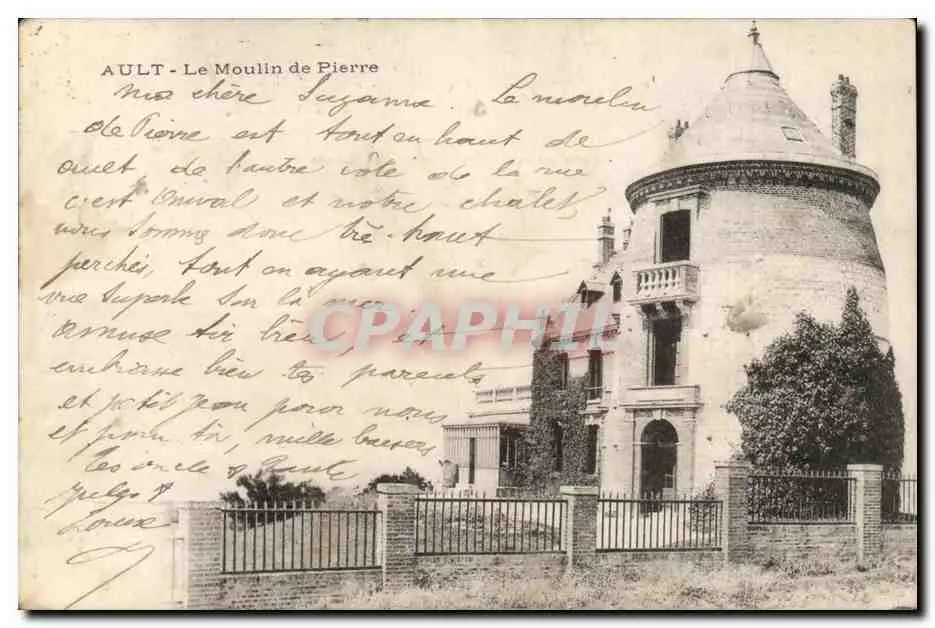 AULT - Le Moulin de Pierre
Ma chère Suzanne. Le moulin
de Pierre est tout en haut de
ault de l'autre côté de la rue
c'est Onival et notre châlet,
nous somme donc très haut
perchés, tout en ayant une
vue superbe sur la
amuse toi bien, et
embrasse bien tes parents
et petit Jean pour nous
et pour toi, mille baisers
tes oncle & Tante
Jules &
Louise
CPAPHIL